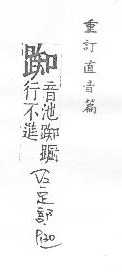 重訂直音篇
踟
音池踟躕
行不進
足部
P130